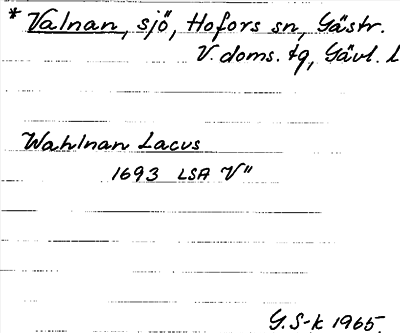 * Valnan, sjö, Hofors sn, Gästr.
V. doms. tg, Gävl. l
Wahlnan Lacus
1693 LSA V"
G. S-k 1965.